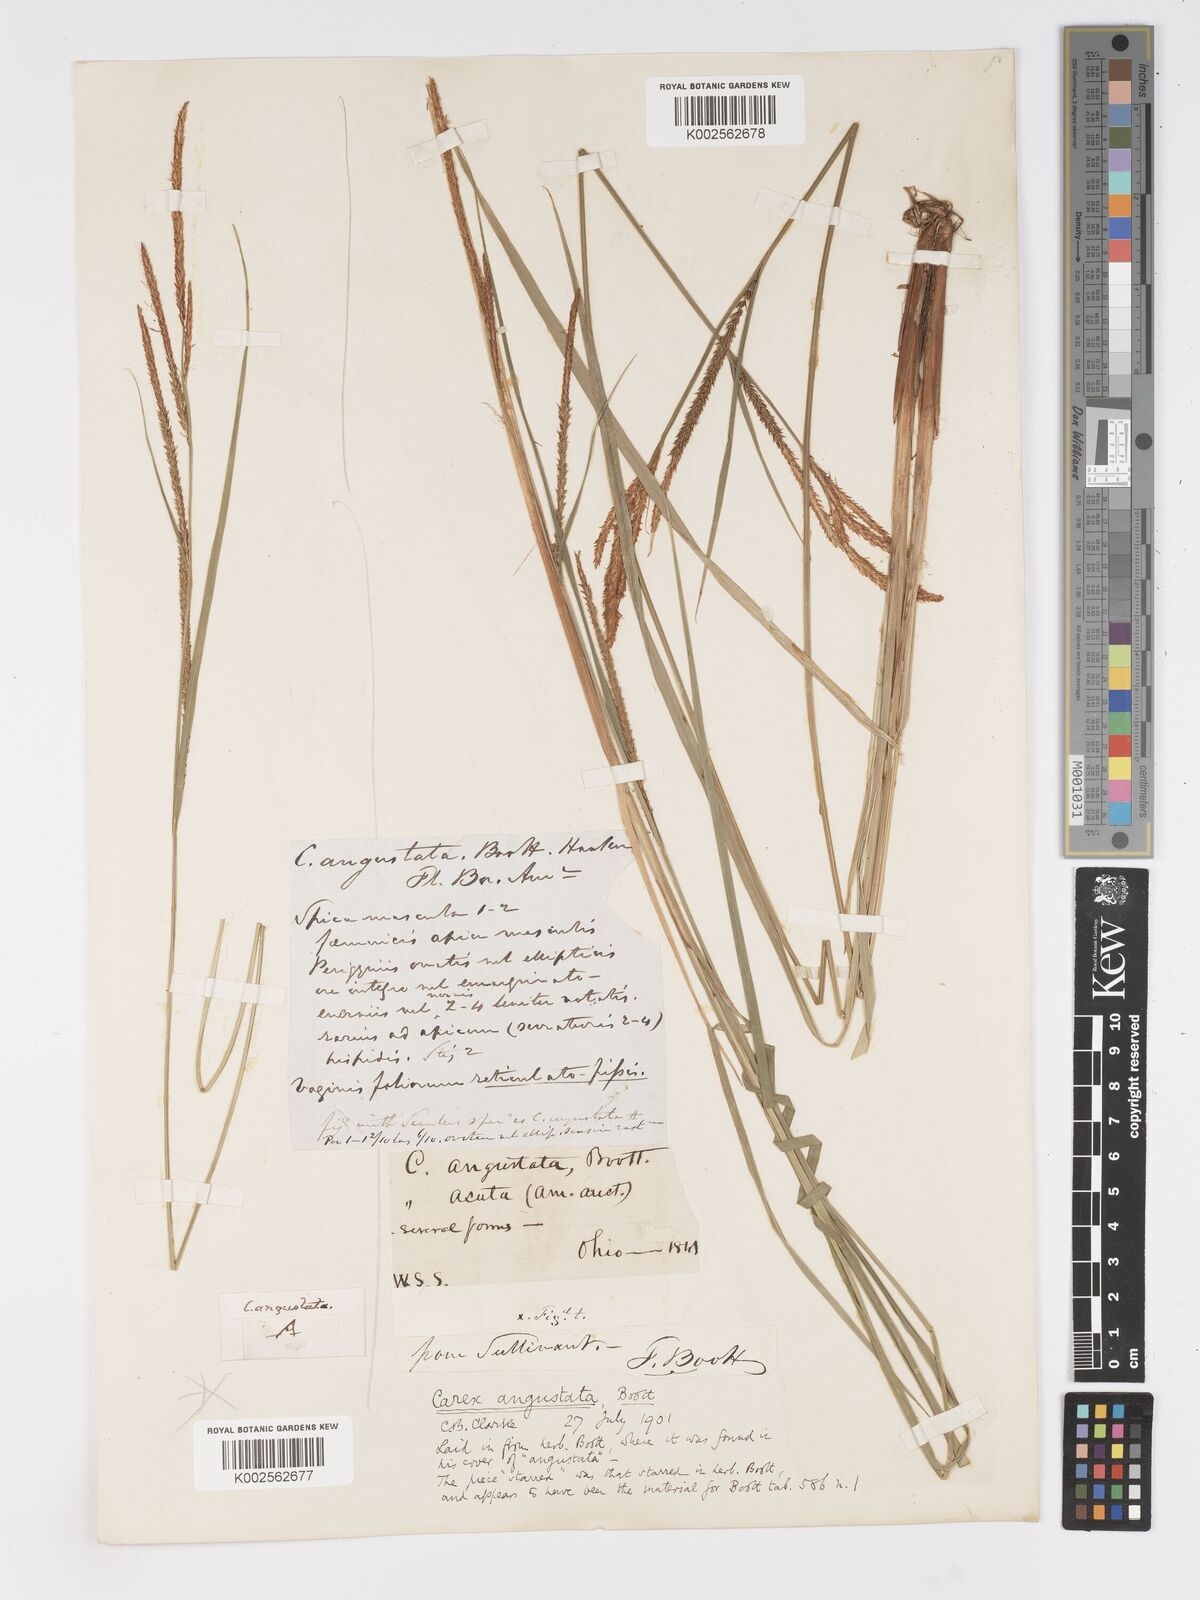 ROYAL BOTANIC GARDENS KEW
K002562678
C. angustata. Boott. Hooker
Fl. Bor. Amr
Spica mascula 1-2
foemineis apice masculis
Perigyniis ovatis vel ellipticis
ore integro vel emarginato-
enerviis vel nervis 2-4 leviter notatis.
rarius ad apicem (serraturis 2-4)
hispidis. Stig 2
Vaginis foliorum reticulato-fissis.
C. angustata, Boott.
" acuta (Am. auct.)
several forms —
Ohio — 1841
W.S.S.
x. Figd. t.
from Sullivant. —
F. Boott
C. angustata.
A
Carex angustata, Boott
C.B. Clarke 27 July 1901
Laid in from herb. Boott, where it was found in
his cover of "angustata" —
The piece "starred" was that starred in herb. Boott,
and appears to have been the material for Boott tab. 586 n. 1
ROYAL BOTANIC GARDENS KEW
K002562677
inches
centimetres
Density
Don Williams
M001031
Kew
copyright reserved
0 1 2 3 4 5 6 7 8 9 10
cm